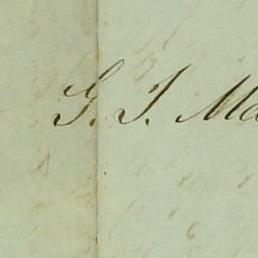 G. J. Ma